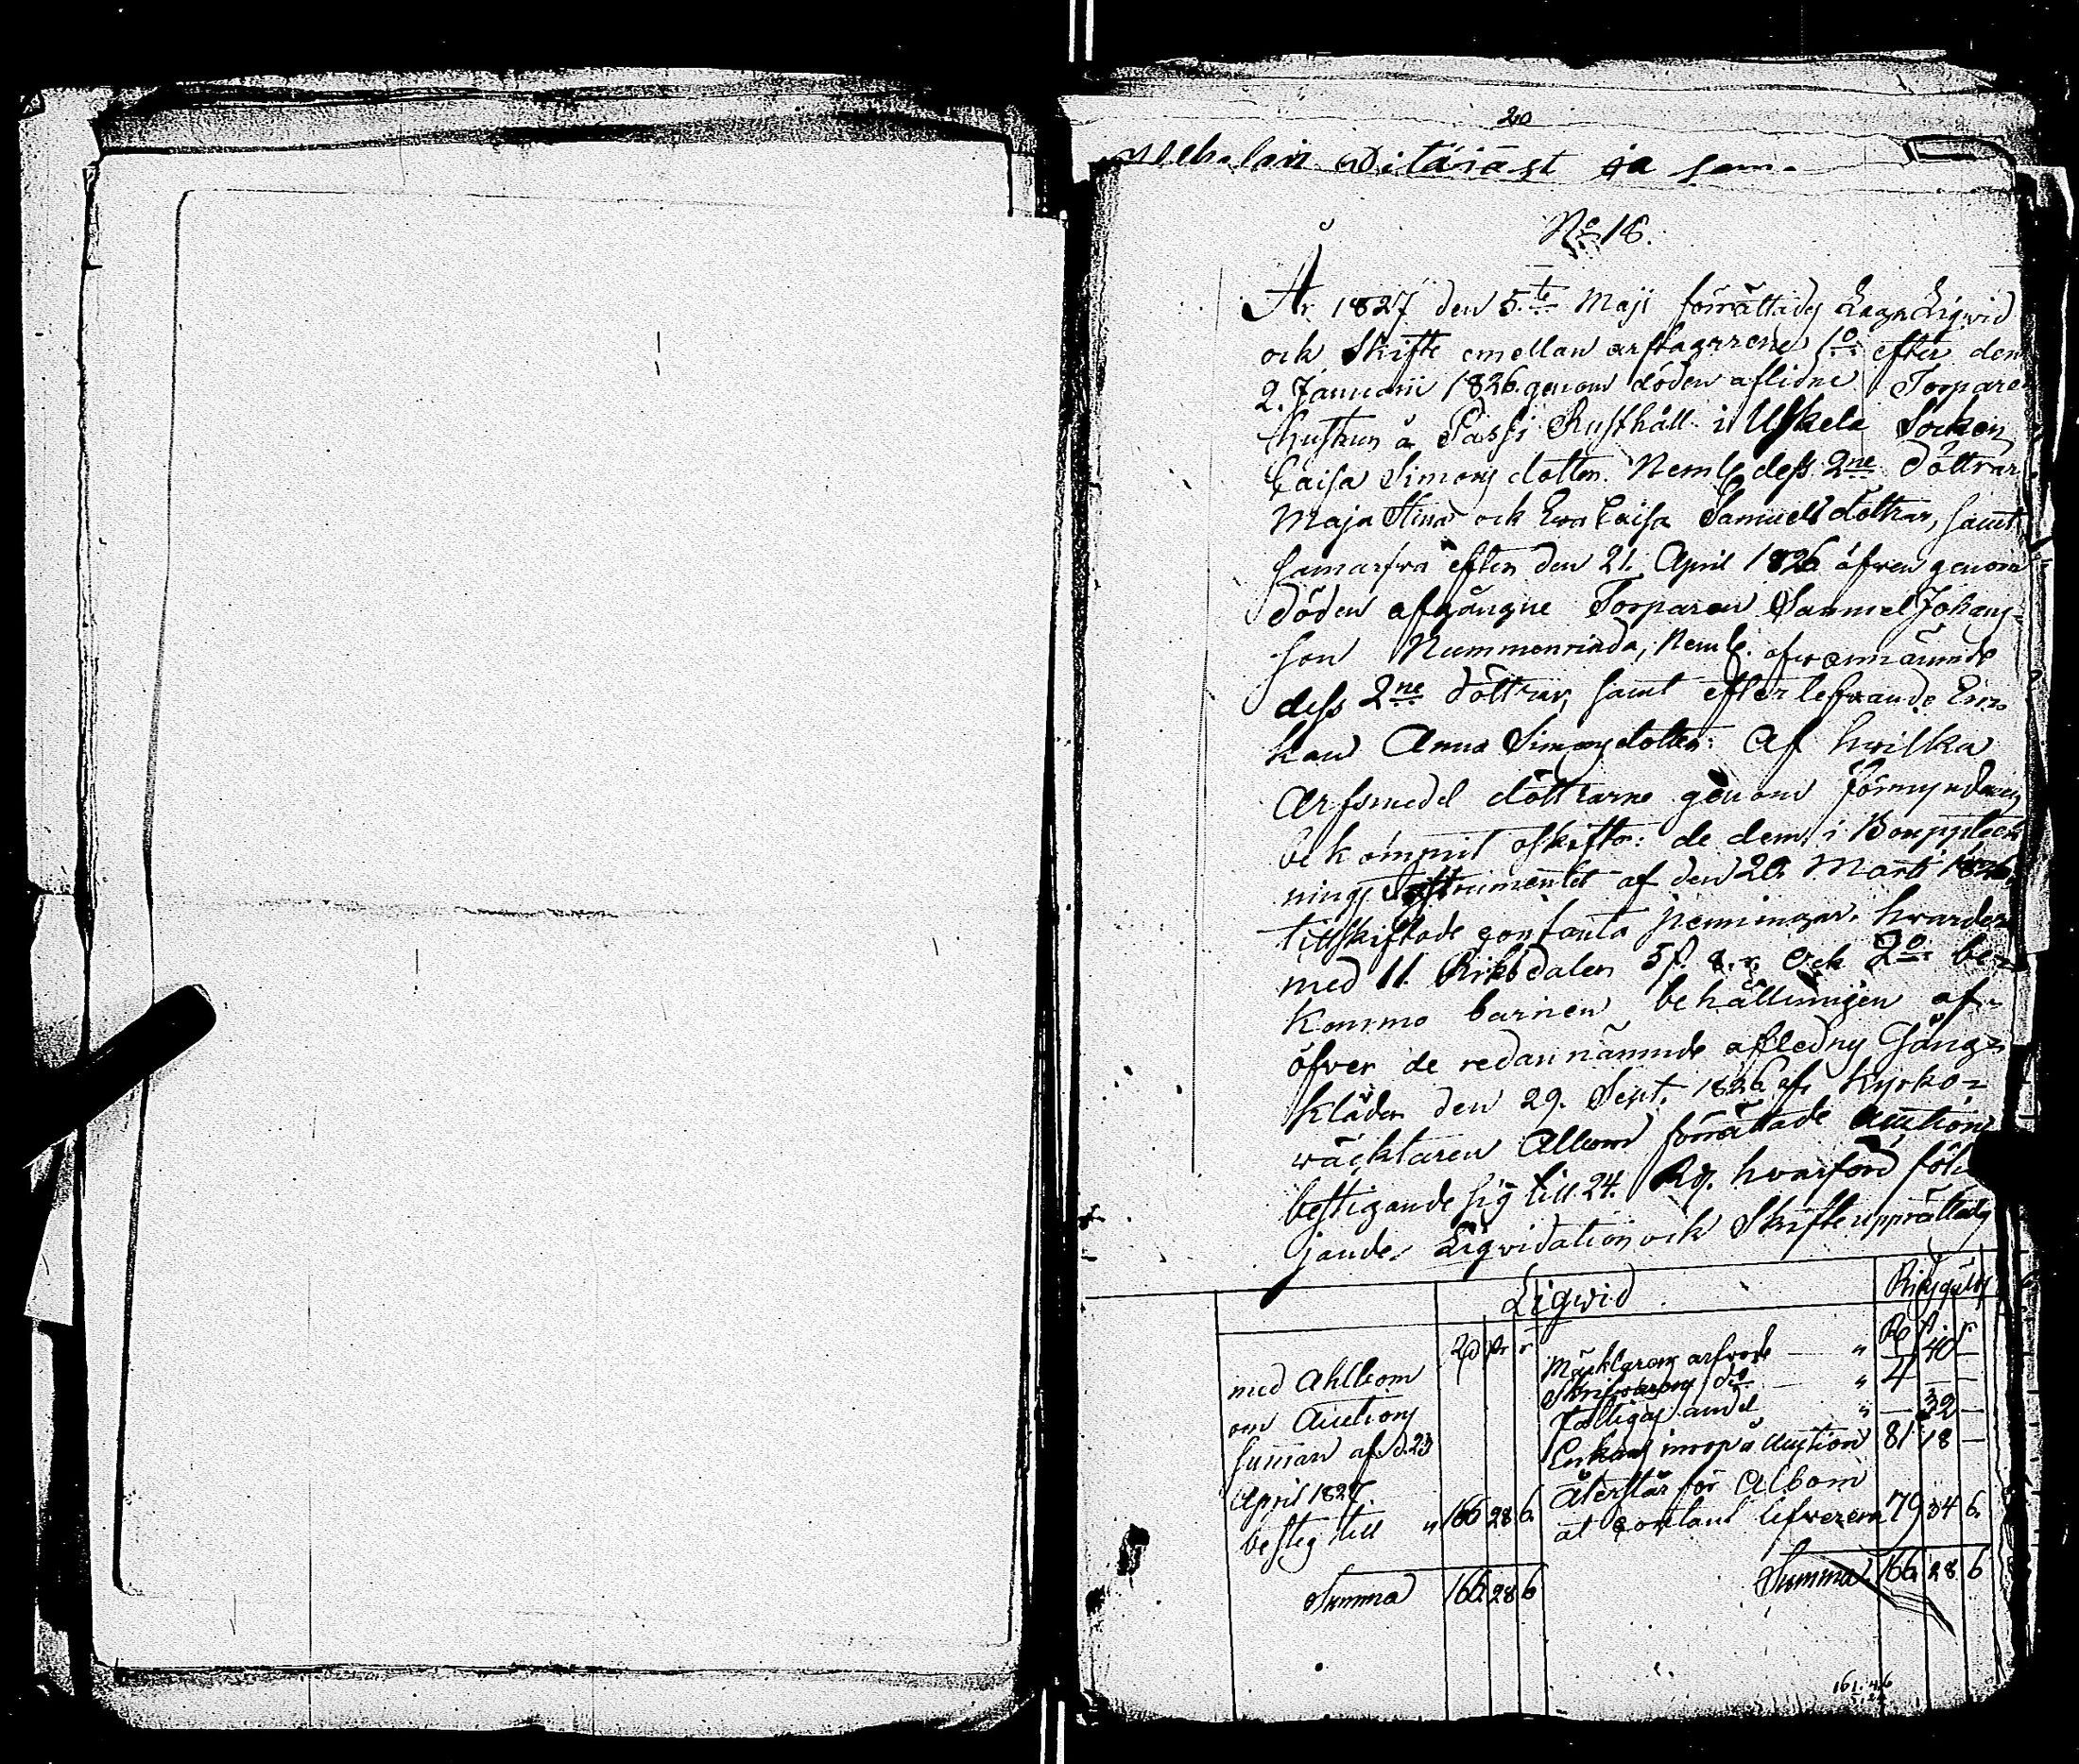 20
ja
No 18.
År 1827 den 5.te Maji förrättades Laga Liqvid
och Skifte emellan arftagarene 1o efter den
2. Januarii 1826. genom döden aflidne Torpare
hustrun å Passi Rusthåll i Uskela Socken
Caisa Simonsdotter. Neml. dess 2ne döttrar
Maja Stina och Eva Caisa Samuels döttrar, samt
samarfva efter den 21. April 1826 äfven genom
döden afgångne Torparen Samuel Johans-
son Nummenrinda, Neml. ofvannämnde
dess 2ne döttrar, samt efterlefvande En-
kan Anna Simonsdotter: Af hvilka
Arfsmedel döttrarne genom förmyndaren
bekommit oskifto: de dem i Boupptek
nings Instrumentet af den 20. Marti 1826
tillskiftade contanta penningar. hvardera
med 11. Riksdaler 5 s. 8. r. Och 2o be-
kommo barnen behållningen af-
öfver de redan nämnde aflednes Gång-
kläder den 29. Sept. 1826 af Kyrko-
wäcktaren Albom förrättade Auction
bestigande sig till 24. Rd. hvarföre föl-
jande Liqvidation och Skifte upprättades
Liqwid
Riksgälds
Rd s. r
med Ahlbom
om Auctions
Summan af d. 23
April 1827.
besteg till " 166 28 6.
Summa 166 28 6
Mäcklarens arfvode — " 1 40 —
Skrifvarens do — " 4 — —
Fattigas andel " — 32 —
Enkans inrop å Auction 81 18 —
Återstår för Albom
at contant leverera 79 34 6.
Summa 166. 28 6
161. 46